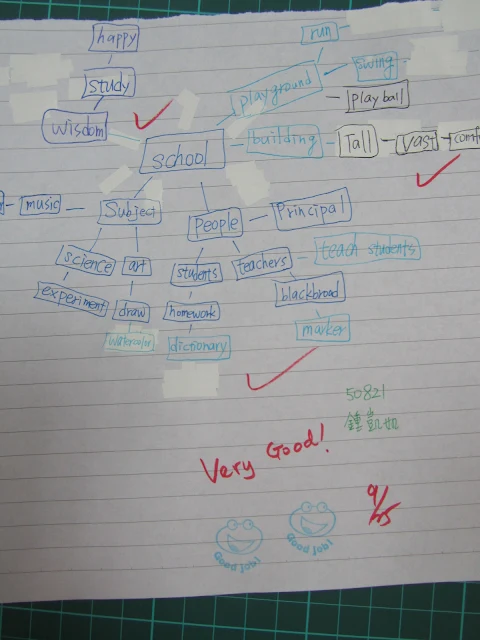 happy
run
study
swing
playground
play ball
wisdom
school
building
Tall
vast
music
Subject
People
Principal
science
art
students
teachers
teach students
experiment
draw
homework
blackbroad
watercolor
dictionary
marker
50821
Very Good!
9/25
Good Job!
Good Job!